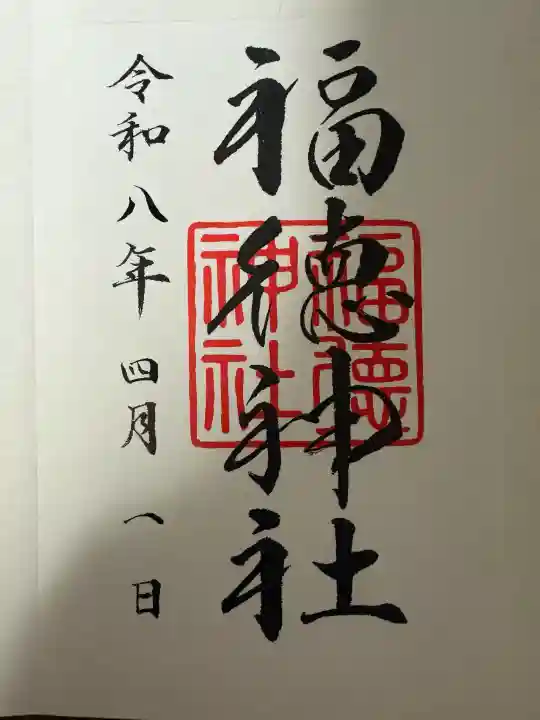 福徳神社
福徳
神社
令和八年 四月 一日